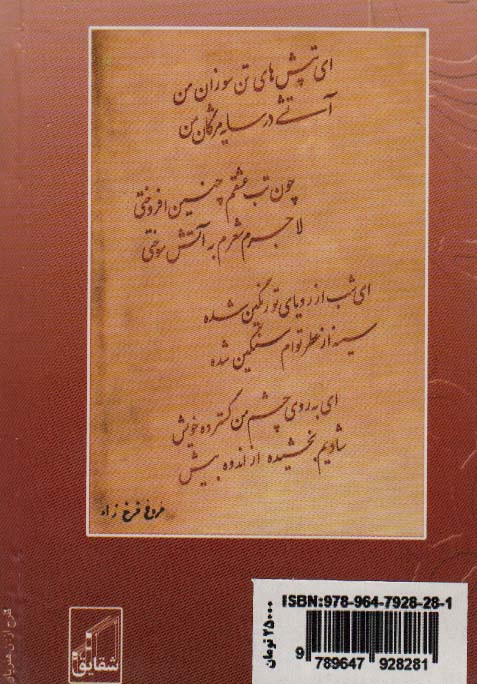 ای تپش های تن سوزان من
آتشی در سایه مژگان من
چون تب عشقم چنین افروختی
لاجرم شعرم به آتش سوختی
ای شب از رویای تو رنگین شده
سینه از عطر توام سنگین شده
ای به روی چشم من گسترده خویش
شادیم بخشیده از اندوه بیش
فروغ فرخ زاد
شقایق
۲۵۰۰۰ تومان
ISBN:978-964-7928-28-1
9 789647 928281